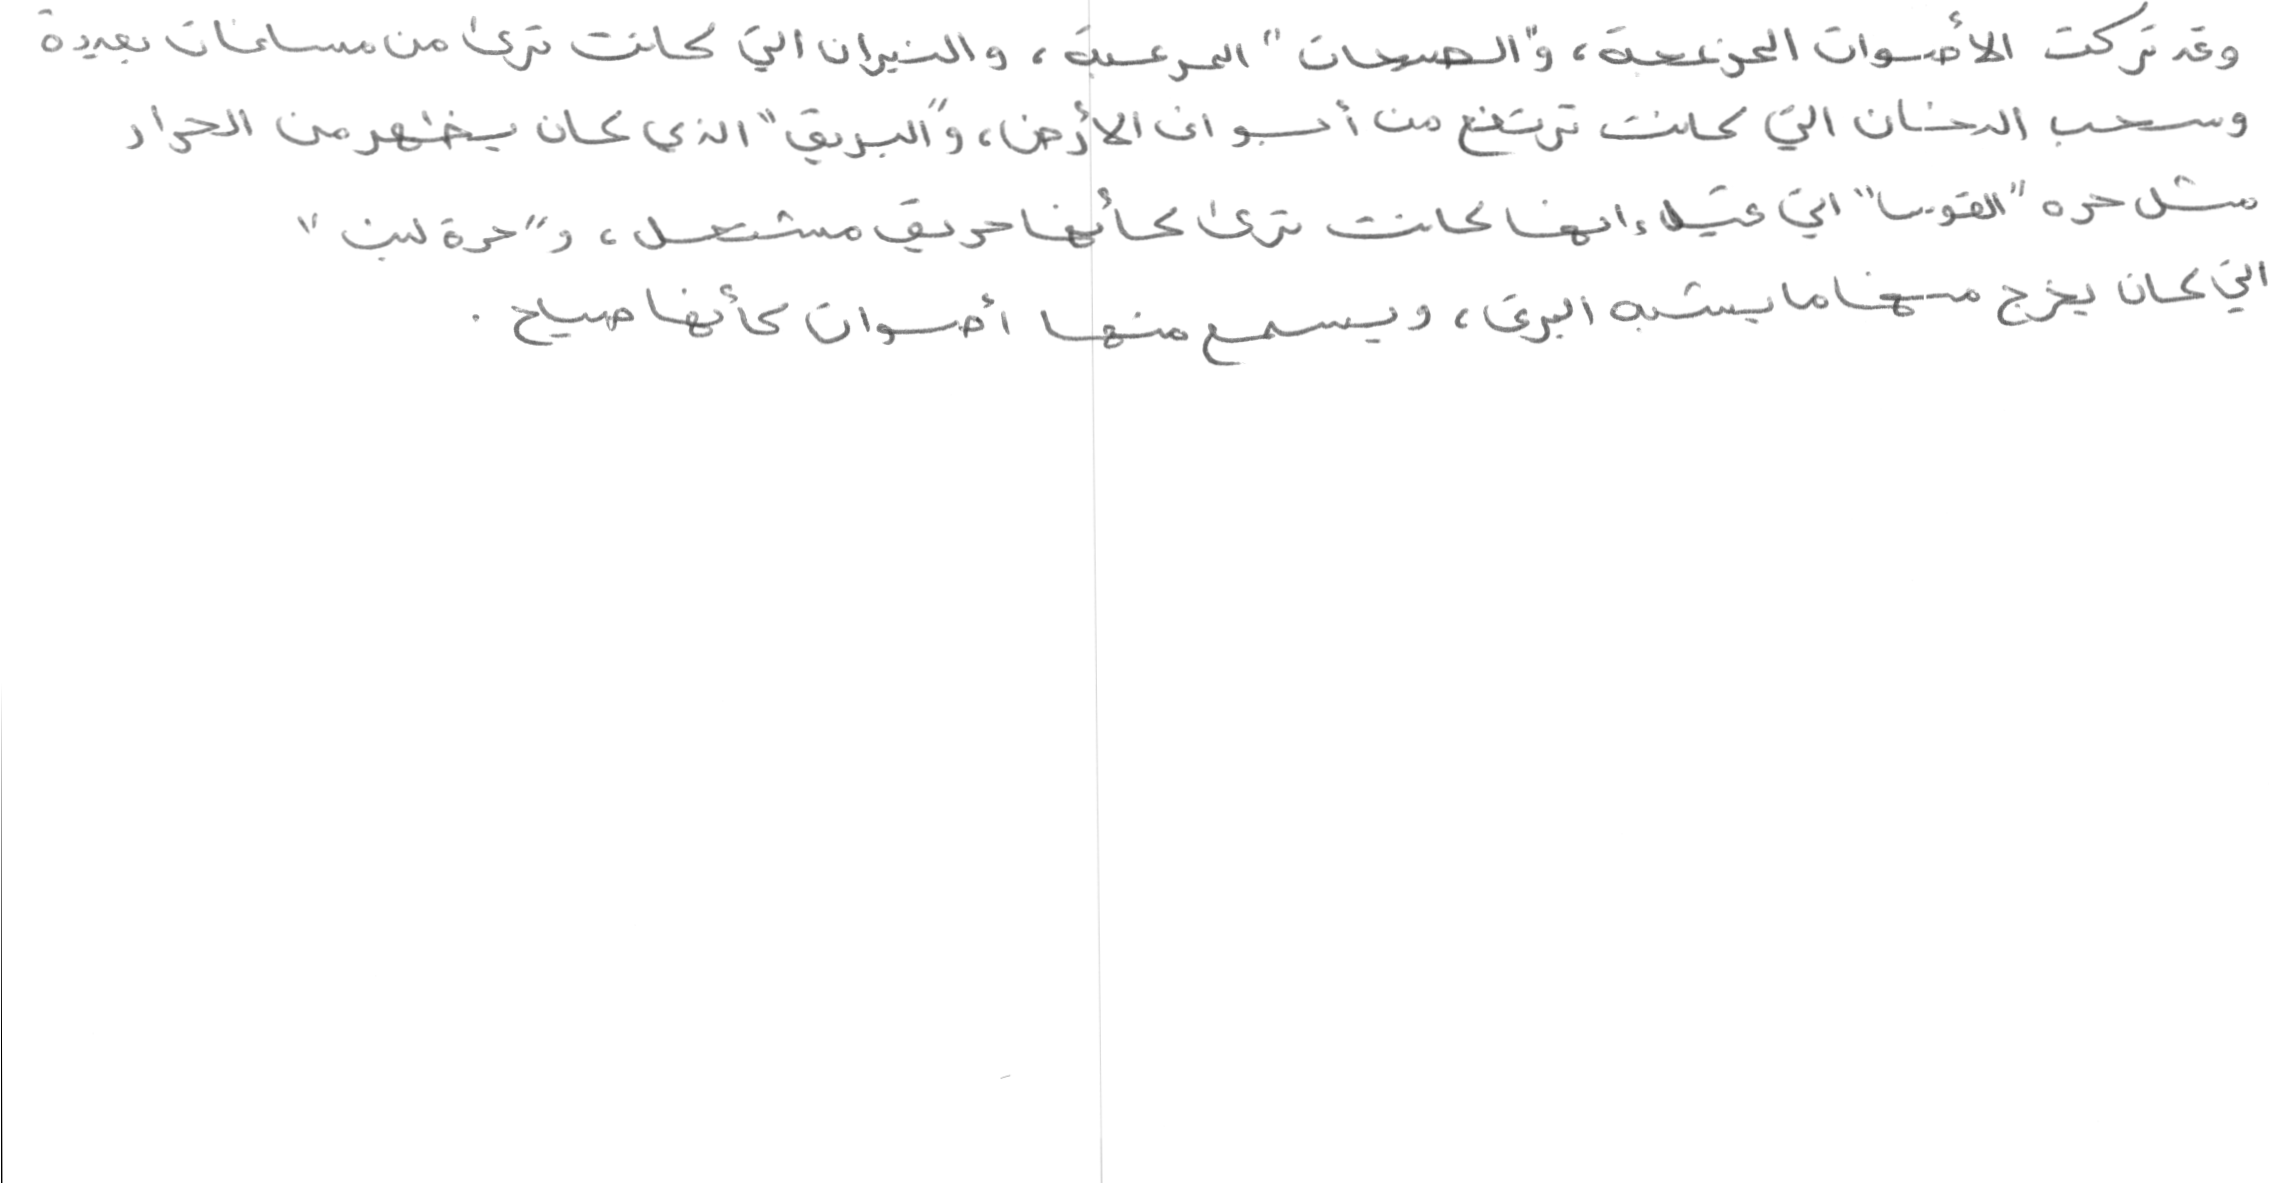 وقد تركت الأصوات المزعجة، و"الصيحات" المرعبة، والنيران التي كانت ترى من مسافات بعيدة
وسحب الدخان التي كانت ترتفع من أجواف الأرض، و"البريق" الذي كان يظهر من الحرار
مثل حره "القوس" التي قيل إنها كانت ترى كأنها حريق مشتعل، و"حرة لبن"
التي كان يخرج منها ما يشبه البرق، ويسمع منها أصوات كأنها صياح.